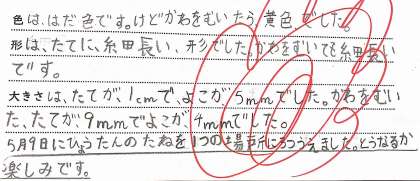 色は、はだ色です。けどかわをむいたら、黄色でした。
形は、たてに、細長い、形でした。かわをむいても細長い
です。
大きさは、たてが、1cmで、よこが、5mmでした。かわをむい
た、たてが、9mmでよこが、4mmでした。
5月9日にひょうたんのたねを1つの場所に3つうえました。どうなるか
楽しみです。